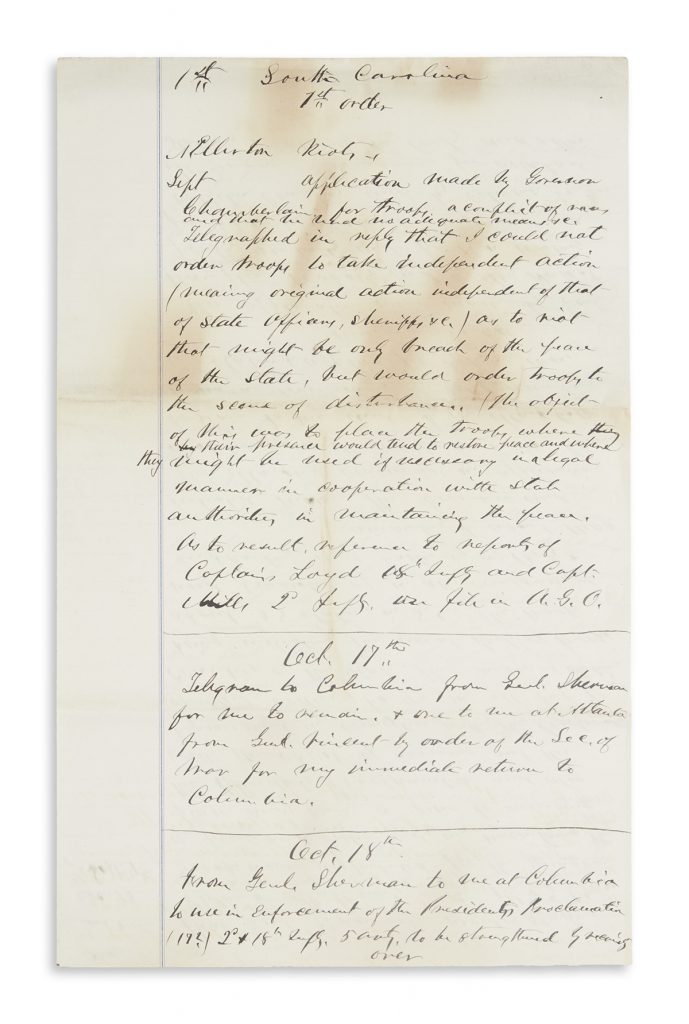 1st South Carolina
1st order
Ellerton Riots
Sept application made by Governor
Chamberlain for troops, a conflict of races
and that he had no adequate means &c.
Telegraphed in reply that I could not
order troops to take independent action
(meaning original action independent of that
of State officers, sheriffs &c.) as to riot
that might be only breach of the peace
of the State, but would order troops to
the scene of disturbance. (The object
of this was to place the troops where they
their presence would tend to restore peace and where
they might be used if necessary in a legal
manner in cooperation with State
authorities in maintaining the peace.
As to result, reference to reports of
Captains Loyd 18th Infty and Capt.
Mills 2d Infty. on file in A.G.O.
Oct. 17th
Telegram to Columbia from Genl. Sherman
for me to remain. & one to me at Atlanta
from Genl. Vincent by order of the Sec. of
War for my immediate return to
Columbia.
Oct. 18th
From Genl. Sherman to me at Columbia
to use in enforcement of the Presidents Proclamation
2d & 18th Infty. 5 arty. to be strengthened by
over